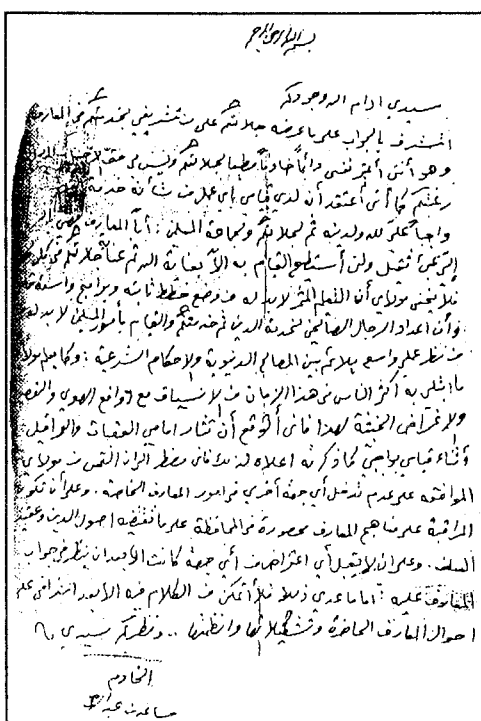 بسم الله الرحمن الرحيم
سيدي ادام الله وجودكم
اتشرف بالجواب على ما عرضه جلالتكم على من تشريفي بخدمتكم في المعارف
وهو أنني أعتبر نفسي دائماً خادماً مطيعاً لجلالتكم وليس لي حق الا
رغبتكم كما أني أعتقد أن لدى قيامي بأي عمل من شأنه خدمة
واجباً عليّ لله ولدينه ثم لجلالتكم ولجماعة المسلمين : أما المعارف فهي
ثقيل ولن أستطيع القيام به الا بعناية الله ثم عناية جلالتكم في كل
فلا يخفى مولاي أن التعليم المثمر لابد له من وضع خطط ثابته وبرامج واسعة
وأن اعداد الرجال الصالحين لخدمة الدين ثم خدمتكم والقيام بأمور المسلمين لابد له
من نظر علمي واسع يلائم بين المصالح الدنيوية والاحكام الشرعية : وكما يعلم مولاي
ما ابتلي به أكثر الناس في هذا الزمان من الانسياق مع دوافع الهوى
والاغراض الخبيثة لهذا فاني أتوقع أن تثار امامي العقبات والعراقيل
أثناء قيامي بواجبي كما ذكرته اعلاه لذلك فاني مضطر الى أن التمس من مولاي
الموافقه على عدم تدخل أي جهة أخرى في امور المعارف الخاصة . وعلى أن تكون
المراقبة على مناهج المعارف محصورة في المحافظة على ما تقتضيه اصول الدين وعقيدة
السلف . وعلى ان لا يقبل أي اعتراض من أي جهة كانت الا بعد ان ينظر في جواب
المعارف عليه : اما ما عدى ذلك فلا أتمكن من الكلام فيه الا بعد اشرافي على
احوال المعارف الحاضرة وتشكيلاتها وانظمتها .. ونظركم سيدي
الخادم
مساعد بن عبدالرحمن